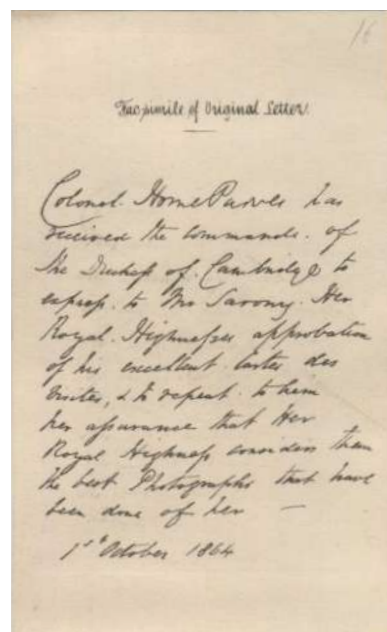 16
Facsimile of Original Letter.
Colonel Home Purves has
received the commands of
the Duchess of Cambridge to
express to Mr Sarony Her
Royal Highnesses approbation
of his excellent Cartes des
Visites, & to repeat to him
her assurance that Her
Royal Highness considers them
the best Photographs that have
been done of her —
1st October 1864